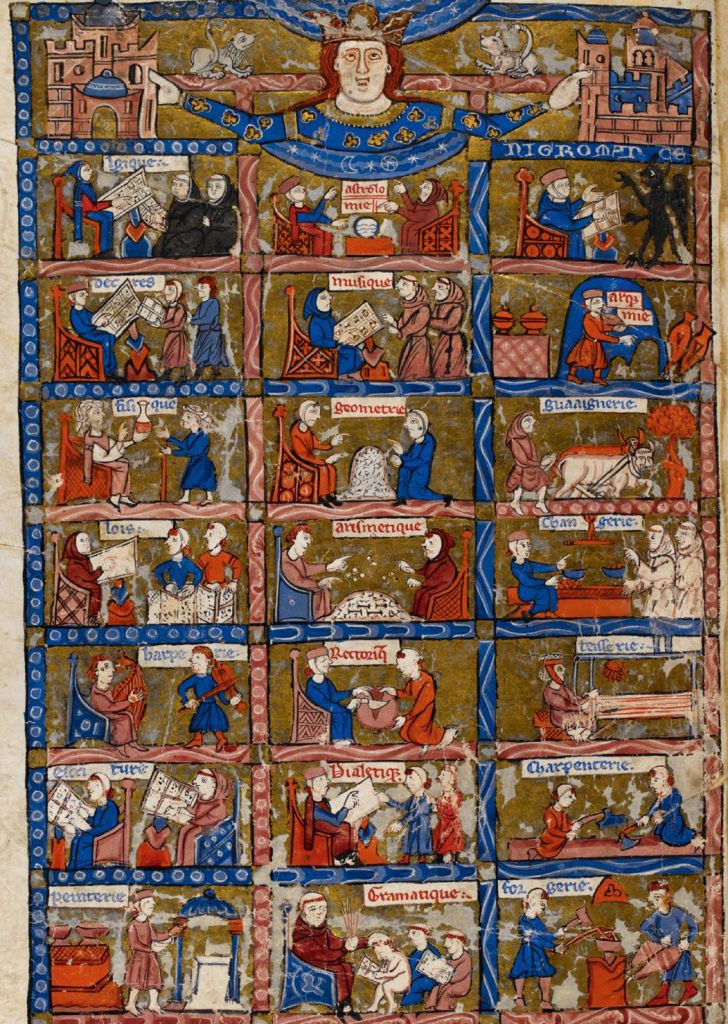 lgique:
astrolo
mie
NIGROMAN CE
dec res
musique
arq3
mie
fisi que
geometrie
guaaignerie.
lois.
arismetique
Chan gerie.
harpe rie.
Rectoriq3
tisse rie.
escri ture
Dialetiq3
Charpenterie.
peinterie
Gramatique.
for gerie.